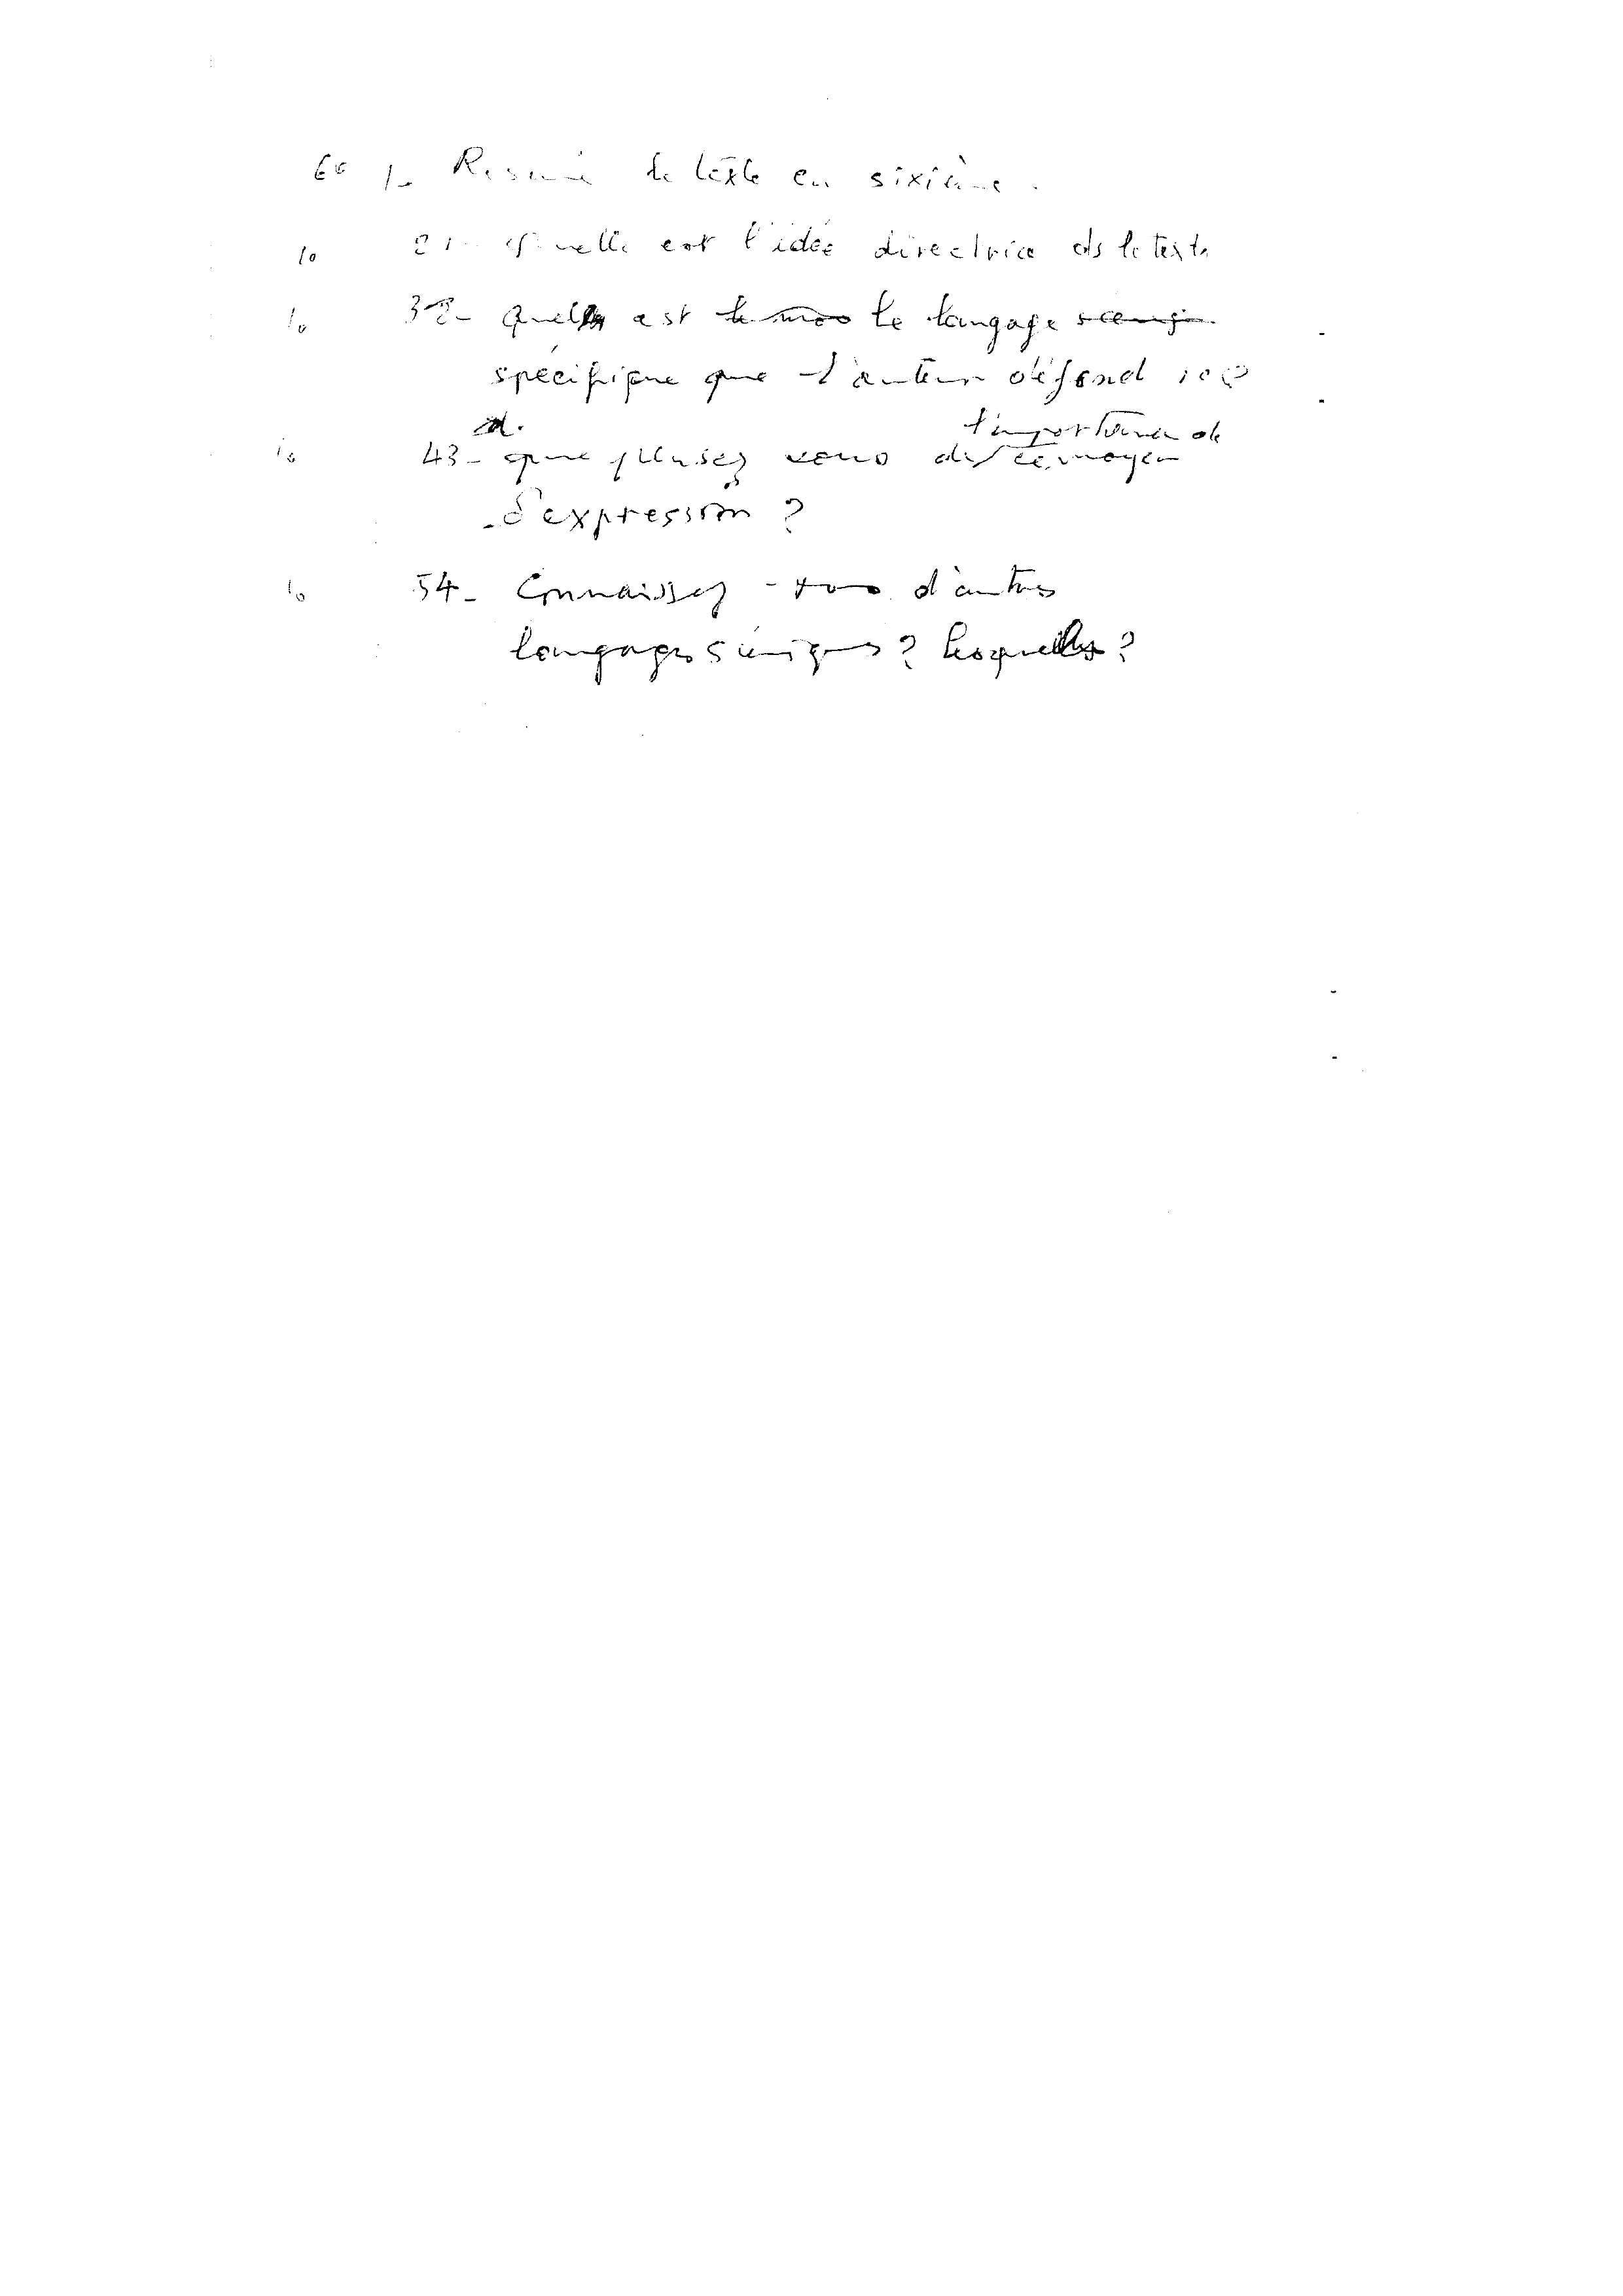 60 1- Résumé le texte en sixième.
10 21- Quelle est l'idée directrice ds le texte
10 32- Quel est le mo le langage scenique
spécifique que l'auteur défend ici ?
l'importance de
10 43- que pensez vous de ce moyen
d'expression ?
10 54- Connaissez-vous d'autres
langages scéniques ? lesquels ?